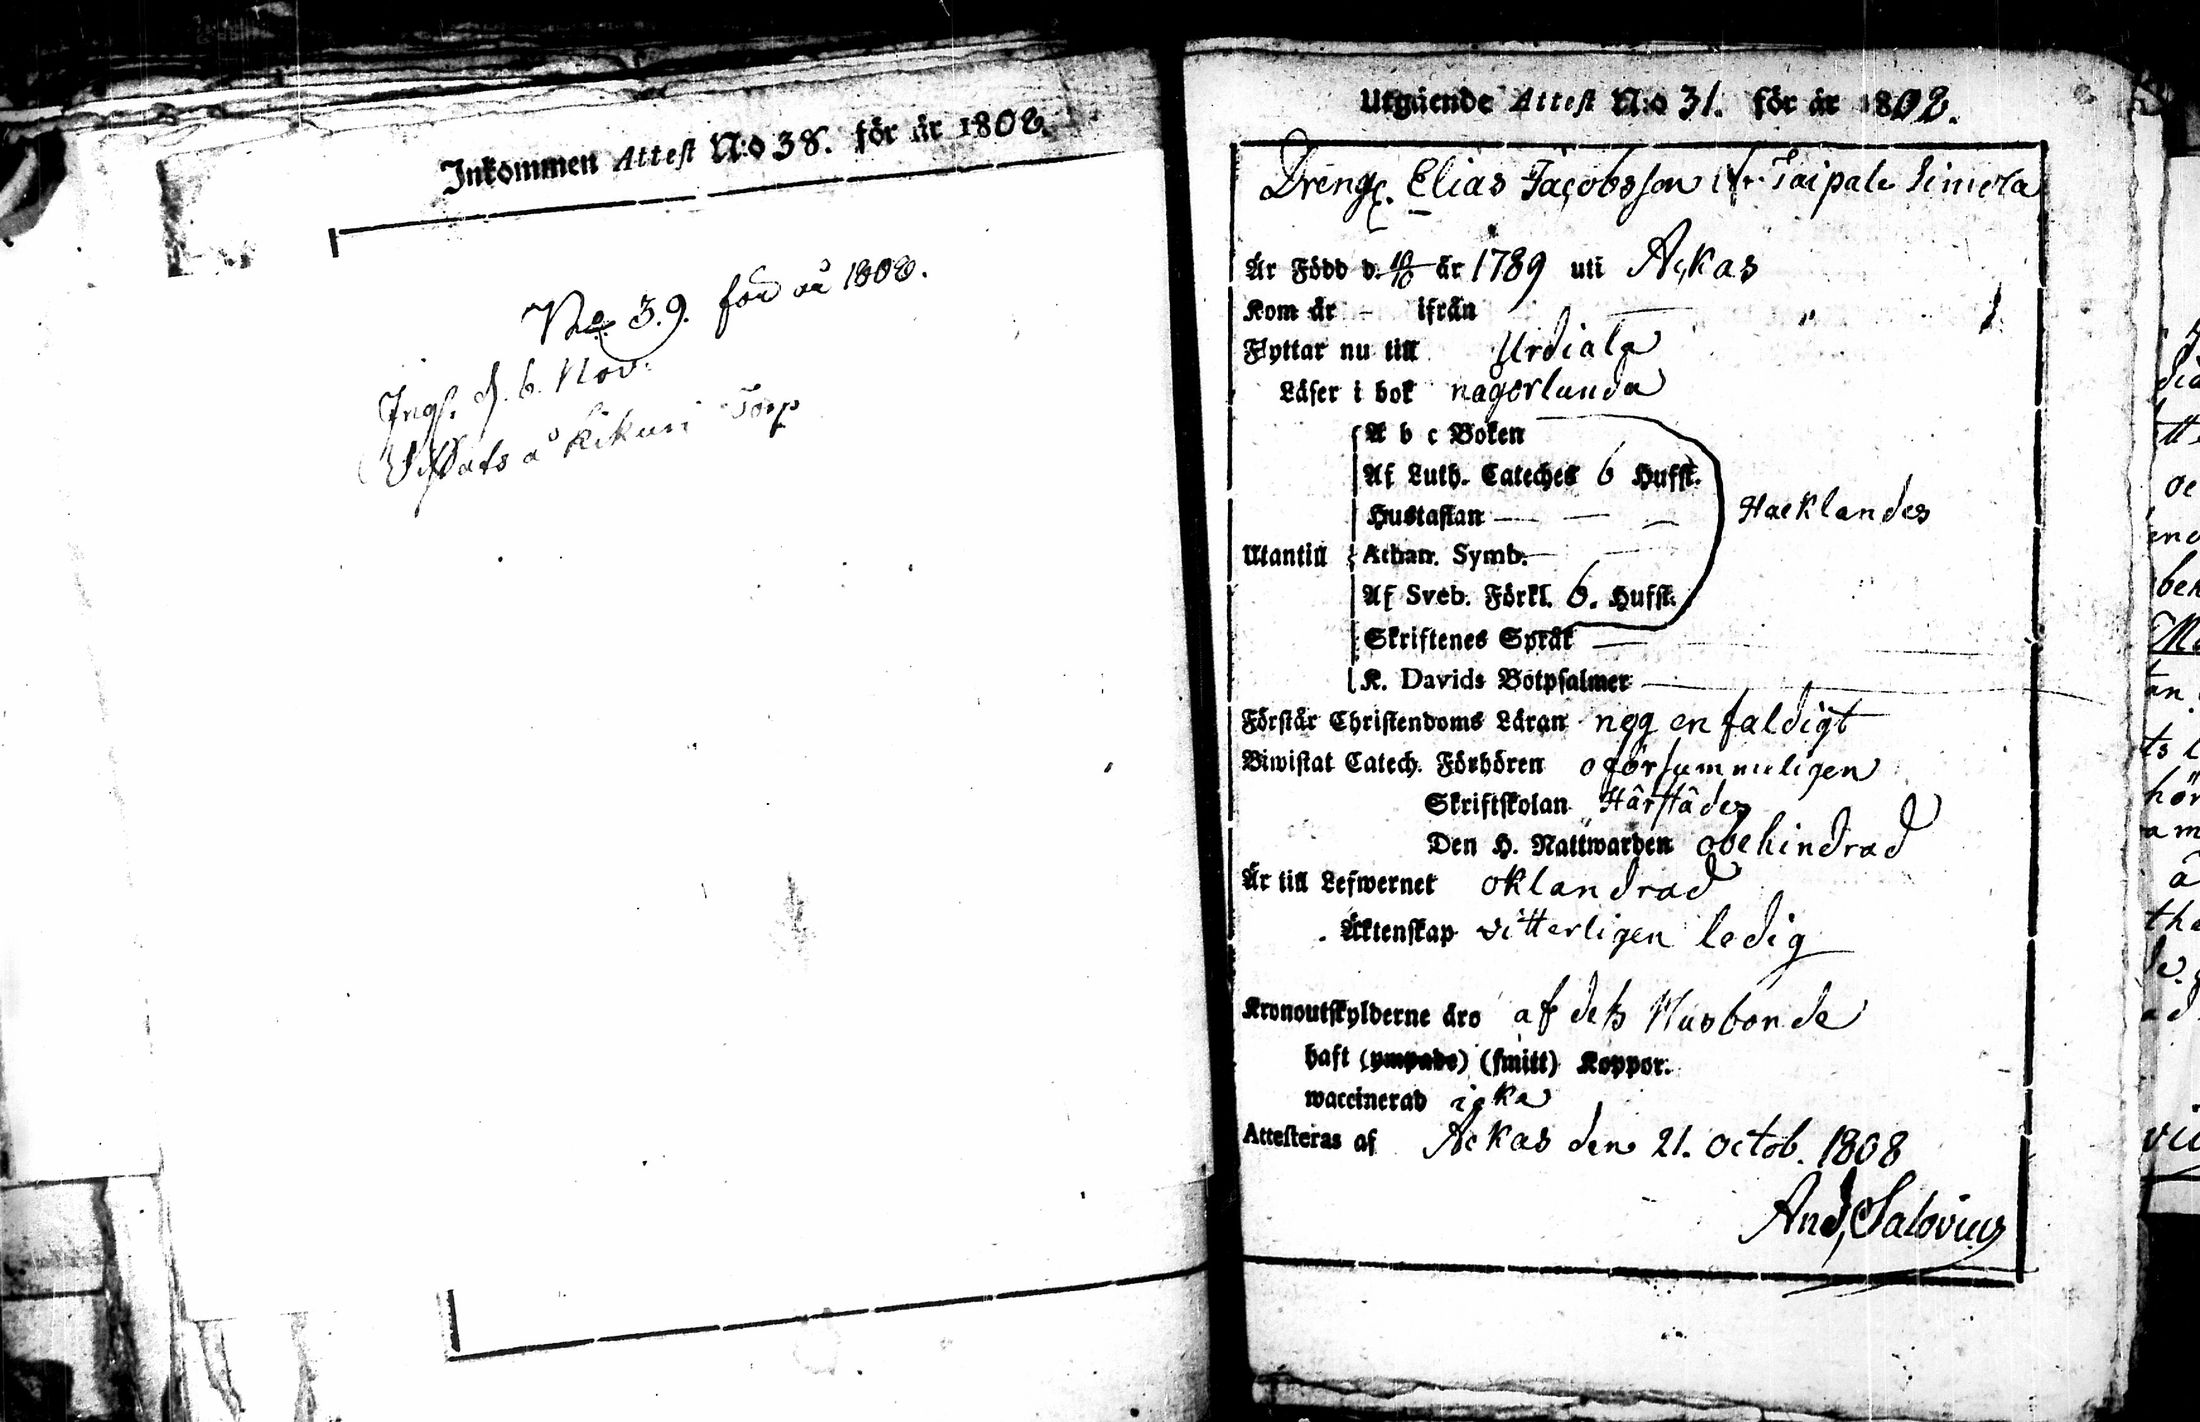 Inkommen Attest N:o 38. för år 1808.
No. 39. för år 1808.
Ingf. d. 6. Nov.
å Kikuri Torp
Utgående Attest N:o 31. för år 1808.
Dreng. Elias Jacobsson ifr. Taipale Simola
Är Född d. 10/10 år 1789 uti Ackas
Kom år - ifrån
Flyttar nu till Urdiala
Läser i bok någorlunda
A b c Boken
Af Luth. Cateches 6 Hufst.
Hustaflan
Hacklandes
Utantill Athan. Symb.
Af Sveb. Förkl. 6. Hufst.
Skriftenes Språk
K. Davids Botpsalmer
Förstår Christendoms Läran nog enfaldigt
Biwistat Catech. Förhören oförsummeligen
Skriftskolan Härstädes
Den H. Nattwarden obehindrad
Är till Lefwernet oklandrad
Äktenskap vitterligen ledig
Kronoutskylderne äro af dess Husbonde
haft (ympade) (smitt) Koppor.
waccinerad icka
Attesteras af Ackas den 21. Octob. 1808
And, Salovius